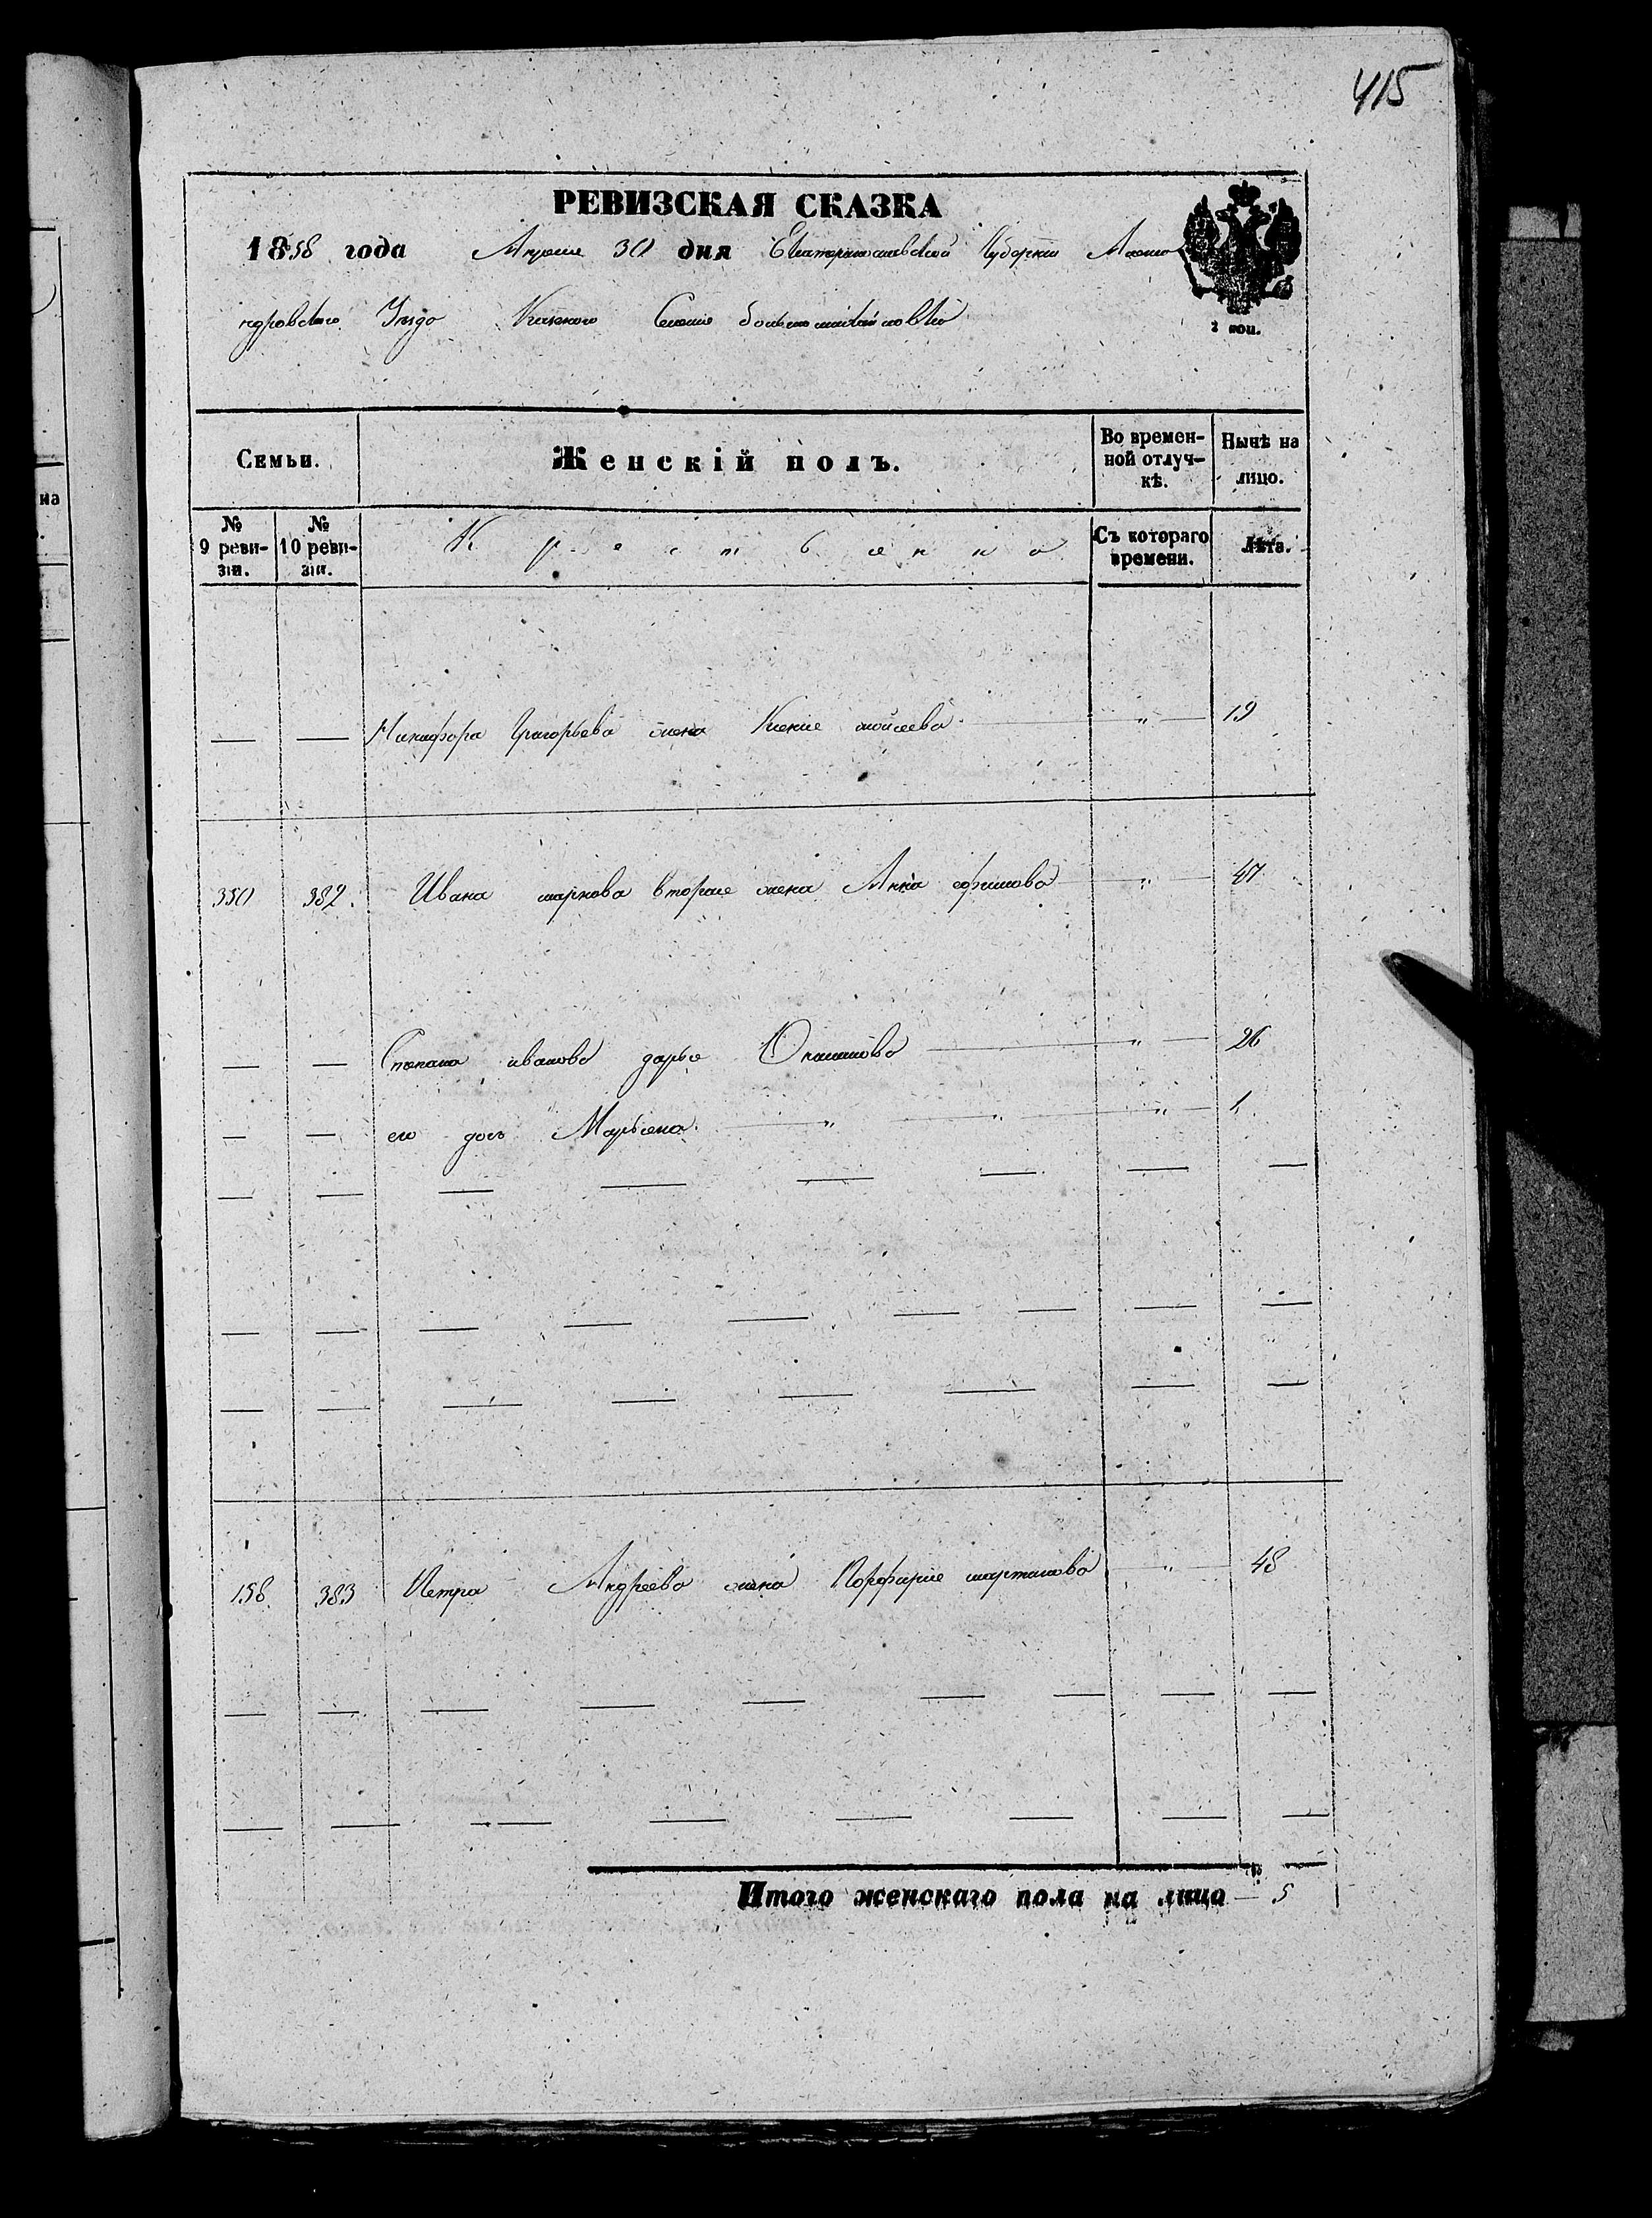 415
РЕВИЗСКАЯ СКАЗКА
1858 года Апреля 30 дня Екатеринославской Губернии Алекса
ндровского Уезда Казеного Селения большемихайловки
2 коп.
Семьи. Женскій полъ. Во времен-ной отлуч-кѣ. Нынѣ на лицо.
№ 9 реви-зіи. № 10 реви-зіи. Крестьянко Съ котораго времени. Лѣта.
на
— — Никифора Григорьева жена Ксения мойсеева — " — 19
350 382. Ивана маркова вторая жена Анна ефимова — " — 47
— — Степана иванова дарья — " — 26
— — его дочь Марьяна — " — " — " — 1
158 383 Петра Андреева жена мартинова — " — 48
Итого женскаго пола на лицо — 5